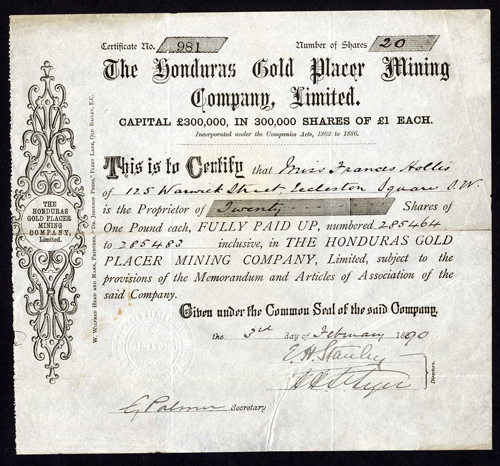 Certificate No. 981 Number of Shares 20
The Honduras Gold Placer Mining
Company, Limited.
CAPITAL £300,000, IN 300,000 SHARES OF £1 EACH.
Incorporated under the Companies Acts, 1862 to 1886.
This is to Certify that Miss Frances Hollis
of 125 Warwick Street Eccleston Square S.W.
is the Proprietor of Twenty Shares of
One Pound each, FULLY PAID UP, numbered 285464
to 285483 inclusive, in THE HONDURAS GOLD
PLACER MINING COMPANY, Limited, subject to the
provisions of the Memorandum and Articles of Association of the
said Company.
Given under the Common Seal of the said Company,
the 3rd day of February 1890
E. H. Stanley
Directors.
C. Palmer Secretary
THE
HONDURAS
GOLD PLACER
MINING
COMPANY,
Limited.
W. Wilfred Head and Mark, Printers, "Dr. Johnson Press," Fleet Lane, Old Bailey, E.C.